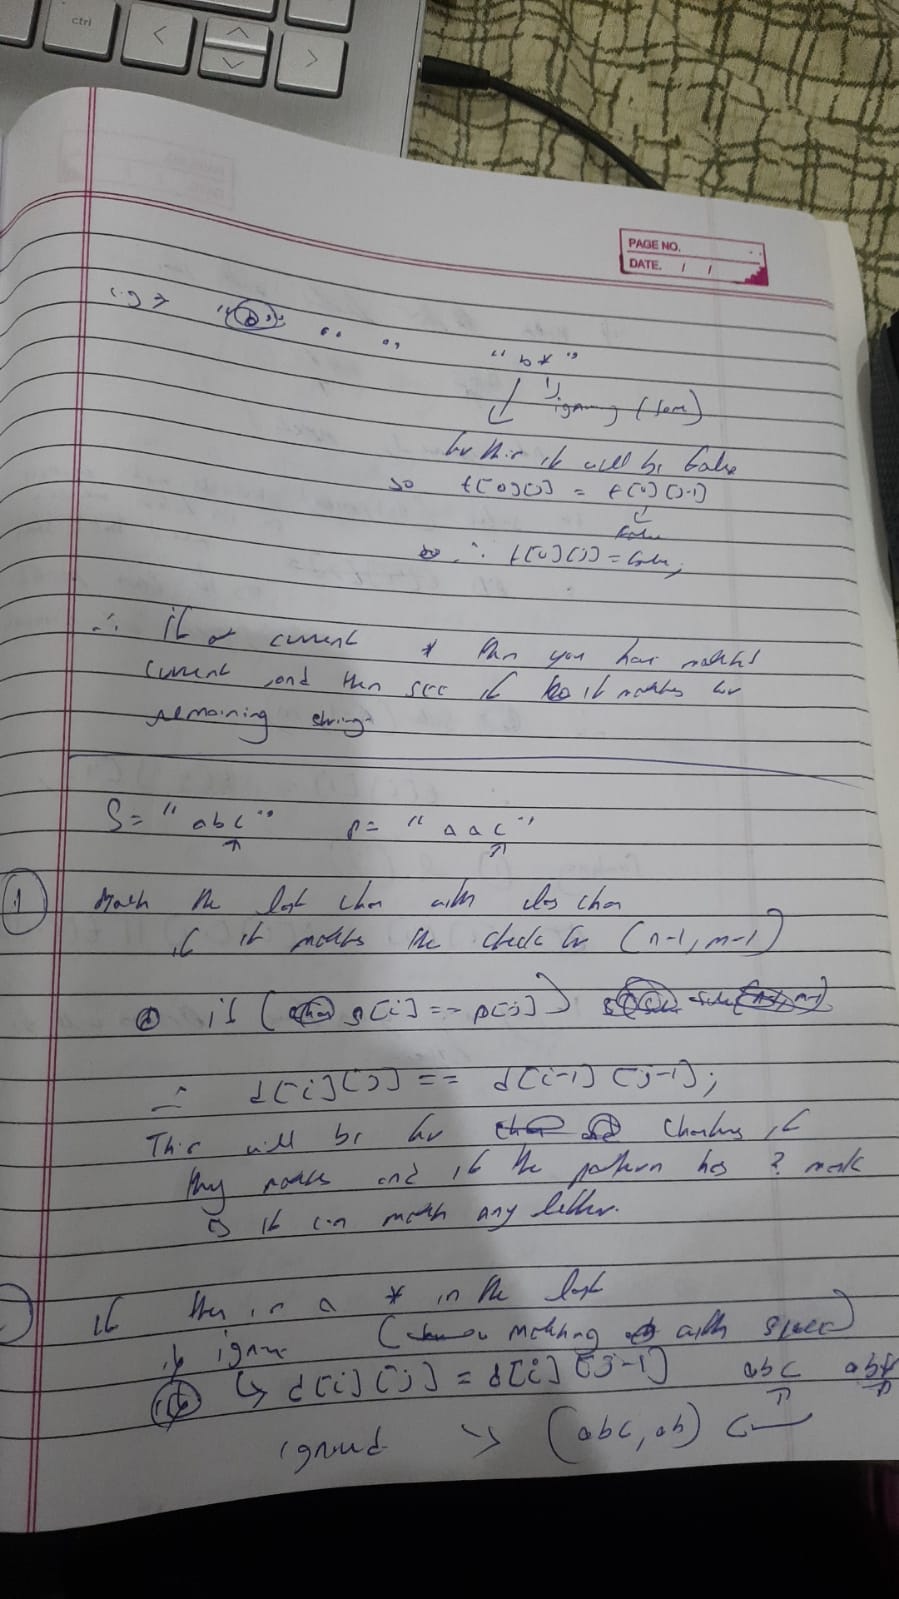 ctrl
PAGE NO.
DATE. / /
e.g → "b" " " "b*"
ignoring (same)
for this it will be false
so t[0][j] = t[0][j-1]
false
∴ t[0][j] = false;
∴ if current * then you have matched
current and then see if it matches for
remaining string
S= "abc" p= "aac"
1 Match the last char with char
if it matches the check for (n-1, m-1)
if ( s[i] == p[j])
∴ d[i][j] == d[i-1][j-1];
This will be for checking if
they match and if the pattern has ? mark
it can match any letter.
If ther is a * in the last
if ignore ( matching with space)
↳ d[i][j] = d[i][j-1] abc ab*
ignored → (abc, ab)